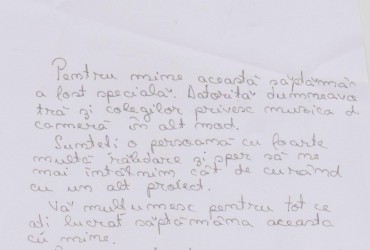 Pentru mine această săptămân
a fost specială. Datorită dumneavoa
tră și colegilor privesc muzica d
cameră în alt mod.
Sunteți o persoană cu foarte
multă răbdare și sper să ne
mai întâlnim cât de curând
cu un alt proiect.
Vă mulțumesc pentru tot ce
ați lucrat săptămâna aceasta
cu mine.